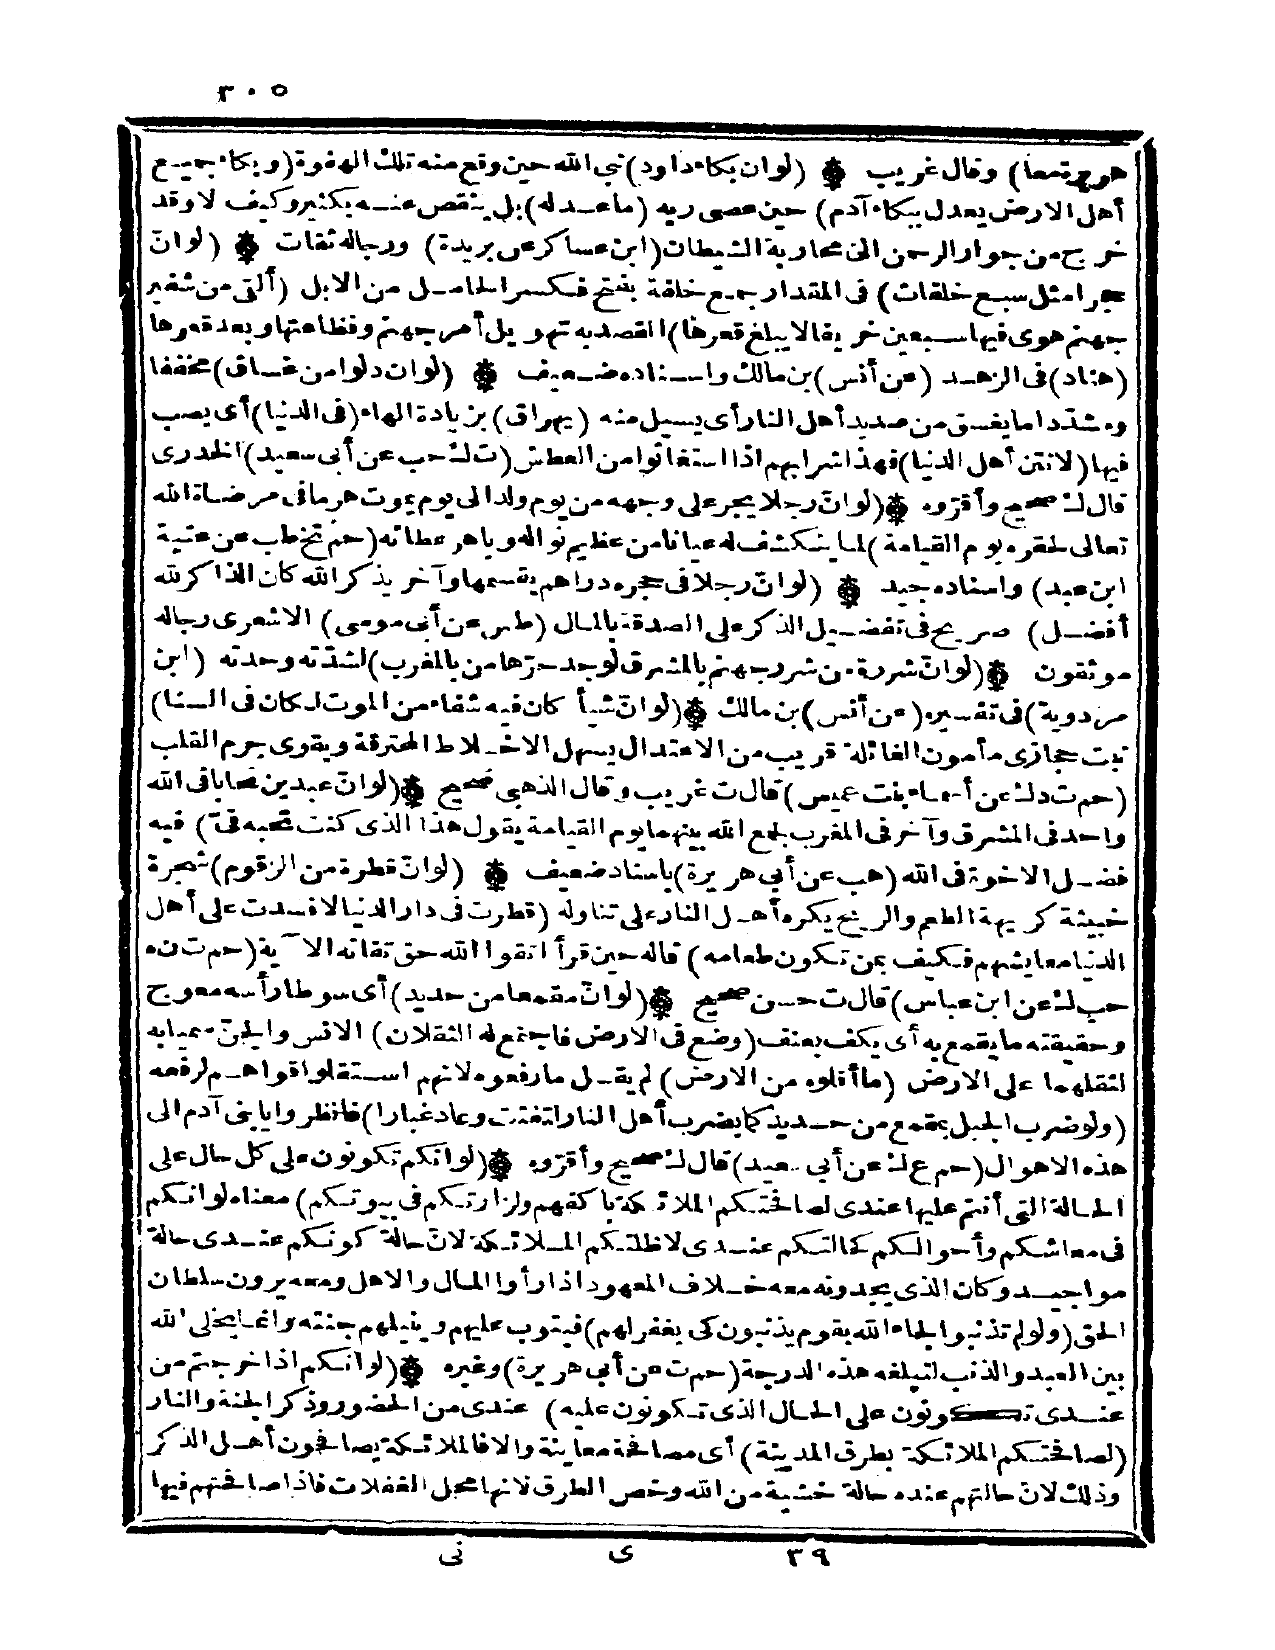 ٣٠٥
هو حم تمعا) وقال غريب ۞ (لوان بكاء داود) نبي الله حين وقع منه تلك الهفوة (و بكاء جميع
أهل الارض يعدل ببكاء آدم) حين عصى ربه (ما عدله) بل ينقص عنه بكثير وكيف لا وقد
خرج من جوار الرحمن الى محاربة الشيطان (ابن عساكر عن بريدة) ورجاله ثقات ۞ (لوانّ
حجرا مثل سبع خلفات) فى المقدار جمع خلفة بفتح فكسر الحامل من الابل (ألقى من شفير
جهنم هوى فيها سبعين خريفا لا يبلغ قعرها) القصد به تهويل أمر جهنم وفظاعتها وبعد قعرها
(هناد) فى الزهد (عن أنس) بن مالك واسناده ضعيف ۞ (لوان دلوا من غساق) مخففا
ومشدّدا ما يغسق من صديد أهل النار أى يسيل منه (يهراق) بزيادة الهاء (فى الدنيا) أى يصب
فيها (لانتن أهل الدنيا) فهذا شرابهم اذا استغاثوا من العطش (ت ك حب عن أبى سعيد) الخدرى
قال ك صحيح وأقرّوه ۞ (لوانّ رجلا يجر على وجهه من يوم ولد الى يوم يموت هرما فى مرضاة الله
تعالى لحقره يوم القيامة) لما ينكشف له عيانا من عظيم نواله وباهر عطائه (حم تخ طب عن عتبة
ابن عبد) واسناده جيد ۞ (لوانّ رجلا فى حجره دراهم يقسمها وآخر يذكر الله كان الذاكر لله
أفضل) صريح فى تفضيل الذكر على الصدقة بالمال (طس عن أبى موسى) الاشعرى رجاله
موثقون ۞ (لوانّ شررة من شرر جهنم بالمشرق لوجد حرّها من بالمغرب) لشدّته وحدته (ابن
مردوية) فى تفسيره (عن أنس) بن مالك ۞ (لوانّ شيأ كان فيه شفاء من الموت لكان فى السنا)
نبت حجازى مأمون الغائلة قريب من الاعتدال يسهل الاخلاط المحترقة ويقوى جرم القلب
(حم ت ه ك عن أسماء بنت عميس) قال ت غريب وقال الذهبى صحيح ۞ (لوانّ عبدين تحابا فى الله
واحد فى المشرق وآخر فى المغرب لجمع الله بينهما يوم القيامة يقول هذا الذى كنت تحبه فىّ) فيه
فضل الاخوة فى الله (هب عن أبى هريرة) باسناد ضعيف ۞ (لوانّ قطرة من الزقوم) شجرة
خبيثة كريهة الطعم والريح يكره أهل النار على تناوله (قطرت فى دار الدنيا لافسدت على أهل
الدنيا معايشهم فكيف بمن تكون طعامه) قاله حين قرأ اتقوا الله حق تقاته الآية (حم ت ن ه
حب ك عن ابن عباس) قال ت حسن صحيح ۞ (لوانّ مقمعا من حديد) أى سوطا رأسه معوج
وحقيقته ما يقمع به أى يكف بعنف (وضع فى الارض فاجتمع له الثقلان) الانس والجنّ سميا به
لثقلهما على الارض (ما أقلوه من الارض) لم يقل ما رفعوه لانهم استقلوا قواهم لرفعه
(ولو ضرب الجبل بمقمع من حديد كما يضرب أهل النار لتفتت وعاد غبارا) فانظروا يا بنى آدم الى
هذه الاهوال (حم ع ك عن أبى سعيد) قال ك صحيح وأقرّوه ۞ (لو انكم تكونون على كل حال على
الحالة التى أنتم عليها عندى لصافحتكم الملائكة باكفهم ولزارتكم فى بيوتكم) معناه لوانكم
فى معاشكم وأحوالكم كحالتكم عندى لاظلتكم الملائكة لانّ حالة كونكم عندى حالة
مواجيد وكان الذى يجدونه معه خلاف المعهود اذا رأوا المال والاهل ومعه يرون سلطان
الحق (ولو لم تذنبوا لجاء الله بقوم يذنبون كى يغفر لهم) فيتوب عليهم وينيلهم جنته وانما يخلى الله
بين العبد والذنب لتبلغه هذه الدرجة (حم ت عن أبى هريرة) وغيره ۞ (لوانكم اذا خرجتم من
عندى تكونون على الحال الذى تكونون عليه) عندى من الحضور وذكر الجنة والنار
(لصافحتكم الملائكة بطرق المدينة) أى مصافحة معاينة والا فالملائكة يصافحون أهل الذكر
وذلك لانّ حالتهم عنده حالة خشية من الله وخص الطرق لانها محل الغفلات فاذا صافحتهم فيها
٣٩ ى نى